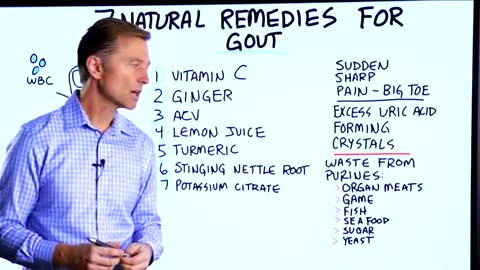 7 NATURAL REMEDIES FOR
GOUT
WBC
1 VITAMIN C
2 GINGER
3 ACV
4 LEMON JUICE
5 TURMERIC
6 STINGING NETTLE ROOT
7 POTASSIUM CITRATE
SUDDEN
SHARP
PAIN - BIG TOE
EXCESS URIC ACID
FORMING
CRYSTALS
WASTE FROM
PURINES:
> ORGAN MEATS
> GAME
> FISH
> SEA FOOD
> SUGAR
> YEAST